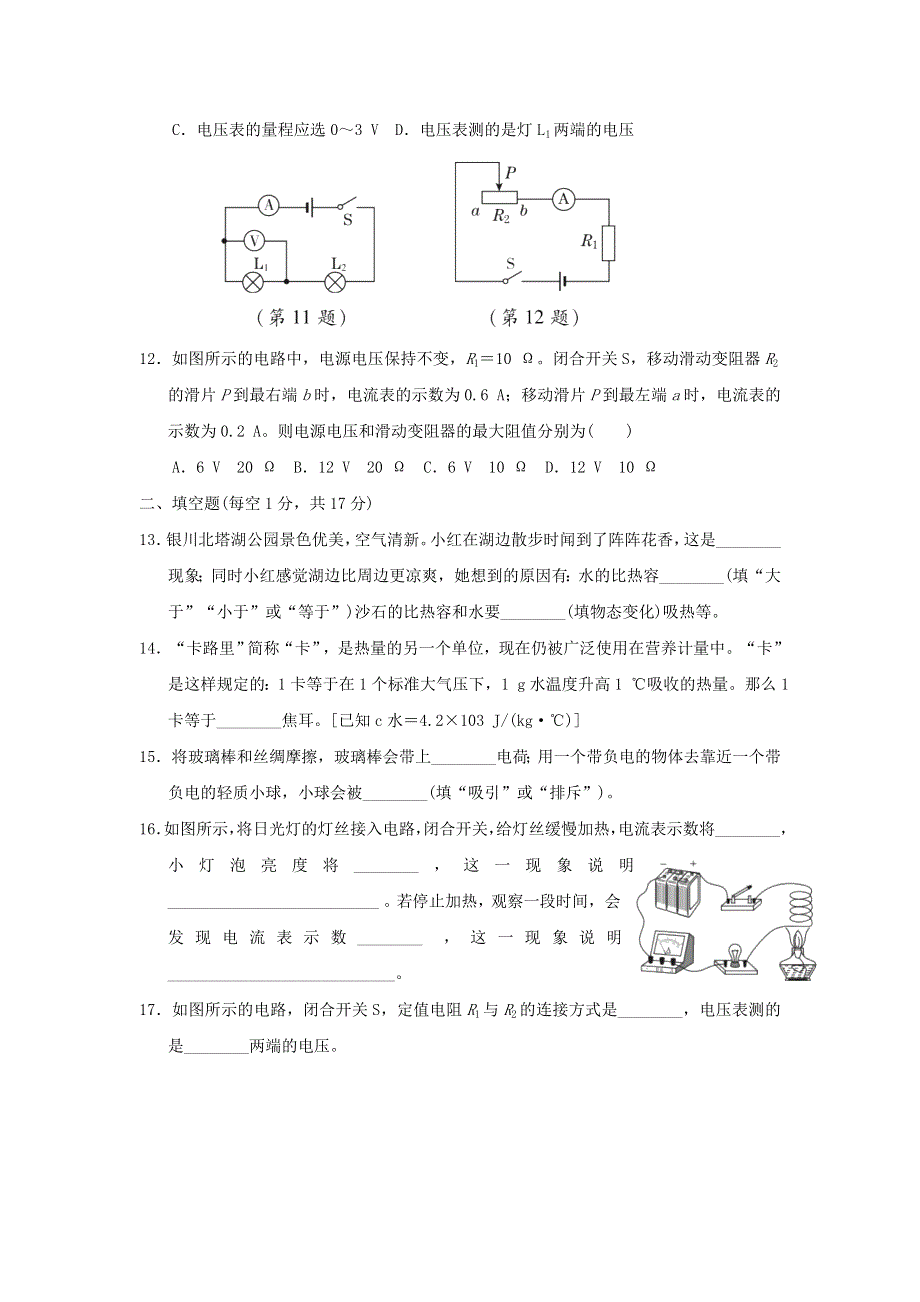 C．电压表的量程应选 0～3 V  D．电压表测的是灯 L1 两端的电压
A
S
V
L1
L2
(第 11 题)
P
a
R2
b
A
R1
S
(第 12 题)
12．如图所示的电路中，电源电压保持不变，R1＝10 Ω。闭合开关 S，移动滑动变阻器 R2
的滑片 P 到最右端 b 时，电流表的示数为 0.6 A；移动滑片 P 到最左端 a 时，电流表的
示数为 0.2 A。则电源电压和滑动变阻器的最大阻值分别为(　　)
A．6 V　20 Ω　B．12 V　20 Ω　C．6 V　10 Ω　D．12 V　10 Ω
二、填空题(每空 1 分，共 17 分)
13．银川北塔湖公园景色优美，空气清新。小红在湖边散步时闻到了阵阵花香，这是________
现象；同时小红感觉湖边比周边更凉爽，她想到的原因有：水的比热容________(填“大
于”“小于”或“等于”)沙石的比热容和水要________(填物态变化)吸热等。
14．“卡路里”简称“卡”，是热量的另一个单位，现在仍被广泛使用在营养计量中。“卡”
是这样规定的：1 卡等于在 1 个标准大气压下，1 g 水温度升高 1 ℃吸收的热量。那么 1
卡等于________焦耳。[已知 c 水＝4.2×103 J/(kg·℃)]
15．将玻璃棒和丝绸摩擦，玻璃棒会带上________电荷；用一个带负电的物体去靠近一个带
负电的轻质小球，小球会被________(填“吸引”或“排斥”)。
16．如图所示，将日光灯的灯丝接入电路，闭合开关，给灯丝缓慢加热，电流表示数将________，
小灯泡亮度将________，这一现象说明
__________________________。若停止加热，观察一段时间，会
发现电流表示数________，这一现象说明
____________________________。
− +
17．如图所示的电路，闭合开关 S，定值电阻 R1 与 R2 的连接方式是________，电压表测的
是________两端的电压。